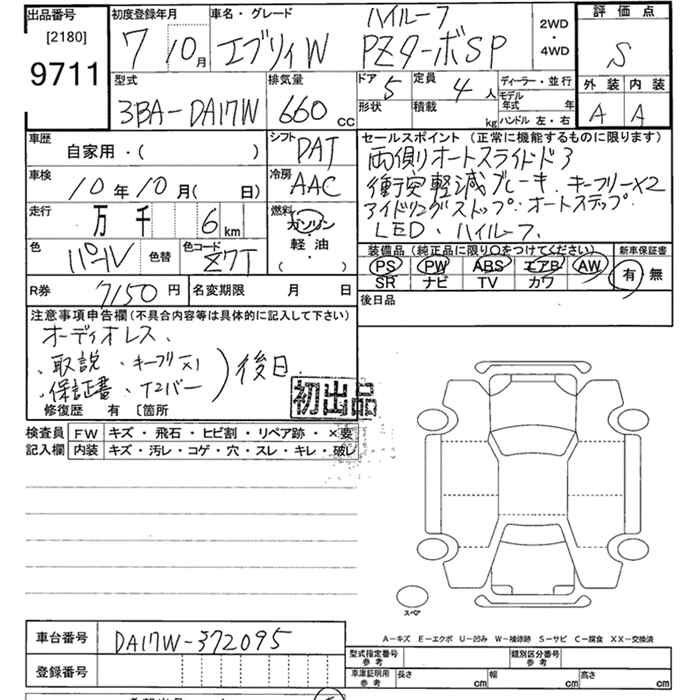 出品番号 初度登録年月 車名・グレード ハイルーフ 評価点
[2180] 7 10月 エブリィW PZターボSP 2WD・4WD S
9711 型式 排気量 ドア 5 定員 4人 ディーラー・並行 外装 内装
3BA-DA17W 660cc 形状 積載 kg モデル年式 年 A A
ハンドル 左・右
車歴 自家用・( ) シフト DAT セールスポイント (正常に機能するものに限ります)
車検 10年10月( 日) 冷房 AAC 両側オートスライドドア
衝突軽減ブレーキ. キーフリーX2
走行 万 千 6 km 燃料 ガソリン・軽油・( ) アイドリングストップ. オートステップ.
LED. ハイルーフ.
色 パール 色替 色コード Z7T 装備品 (純正品に限り○をつけてください) 新車保証書
PS PW ABS エアB AW 有・無
SR ナビ TV カワ
R券 7150円 名変期限 月 日 後日品
注意事項申告欄(不具合内容等は具体的に記入して下さい)
オーディオレス、
、取説 、キーフリーX1
、保証書 、T2バー ) 後日
修復歴 有 [箇所 初出品
検査員 FW キズ・飛石・ヒビ割・リペア跡・×要
記入欄 内装 キズ・汚レ・コゲ・穴・スレ・キレ・破レ
スペア
車台番号 DA17W-372095
A-キズ E-エクボ U-凹み W-補修跡 S-サビ C-腐食 XX-交換済
登録番号 型式指定番号 参考 類別区分番号 参考
車庫証明用 参考 長さ cm 幅 cm 高さ cm